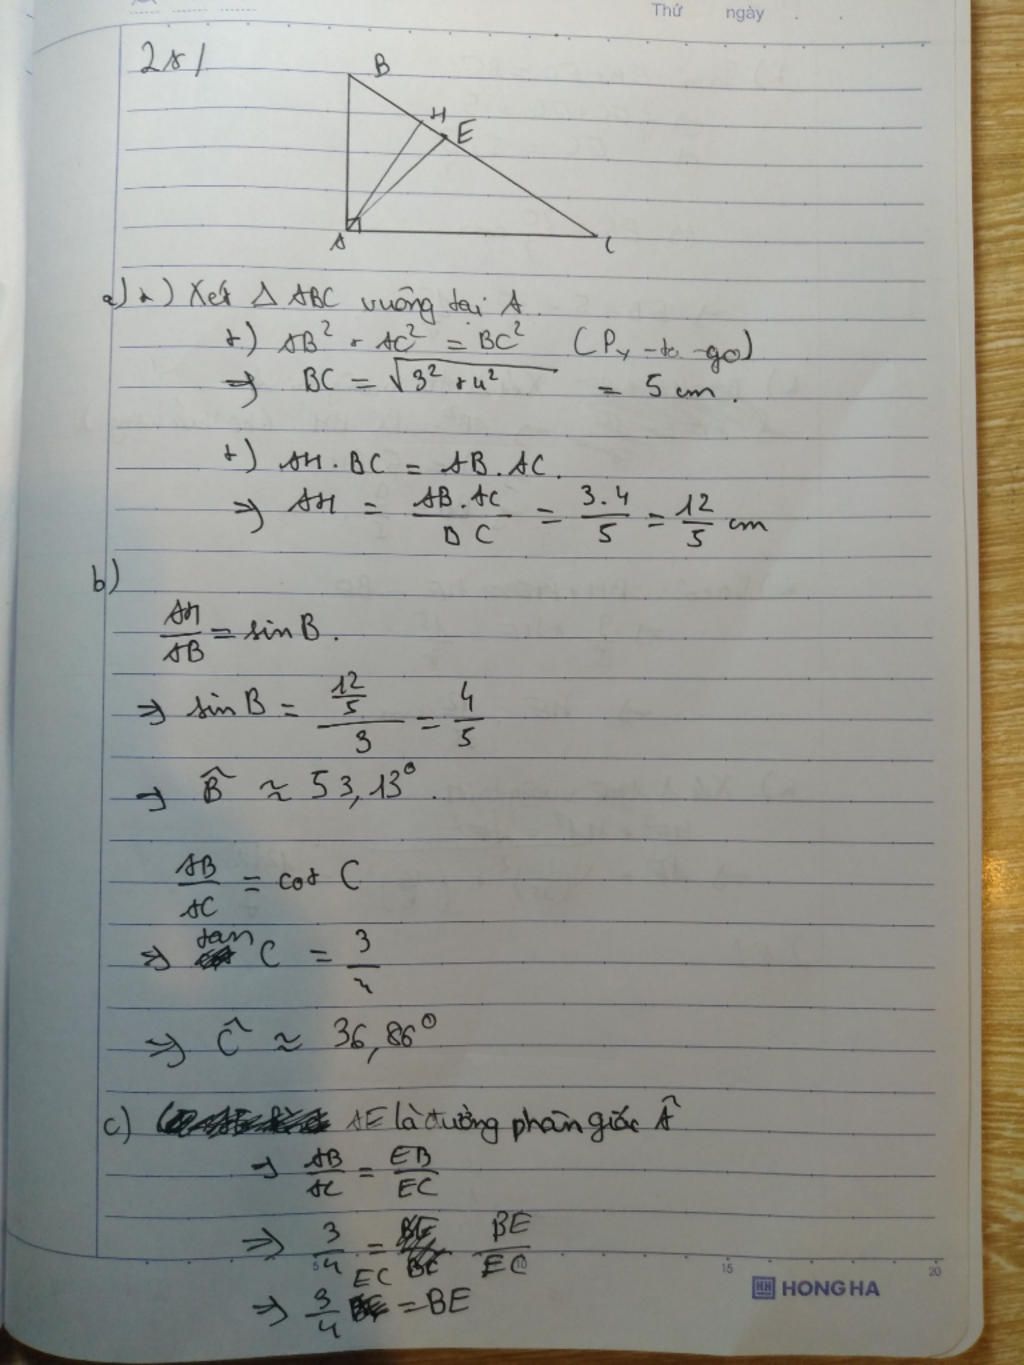 Thứ ngày . .
281
B
H
E
A
C
a) *) Xét Δ ABC vuông tại A
+) AB² + AC² = BC² (Py-ta-go)
=> BC = √3² + 4² = 5 cm.
+) AH . BC = AB . AC.
=> AH = AB . AC / BC = 3 . 4 / 5 = 12/5 cm
b)
AH/AB = sin B.
=> sin B = 12/5 / 3 = 4/5
=> B̂ ≈ 53,13°.
AB/AC = cot C
=> tan C = 3/4
=> Ĉ ≈ 36,86°
c) AE là đường phân giác Â
=> AB/AC = EB/EC
=> 3/4 = BE/EC
=> 3/4 EC = BE
5 10 15 20
HH HONG HA